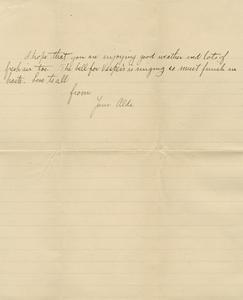 I hope that you are enjoying good weather and lots of
fresh air too. The bell for Vespers is ringing so must finish in
haste. Love to all
from
Your Alda